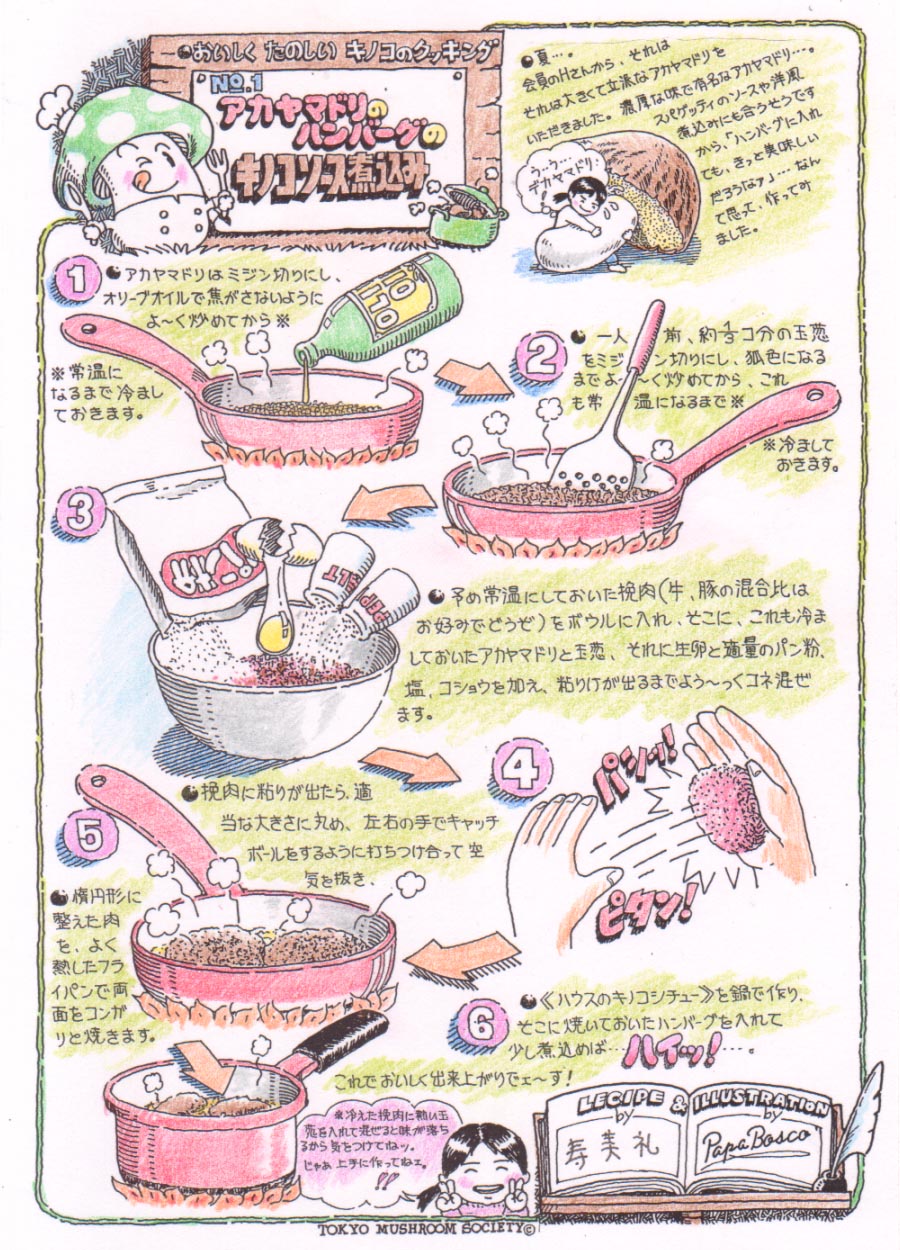 おいしく たのしい キノコのクッキング
No.1
アカヤマドリの
ハンバーグの
キノコソース煮込み
夏…。
会員のHさんから、それは
それは大きくて立派なアカヤマドリを
いただきました。濃厚な味で有名なアカヤマドリ…。
スパゲッティのソースや洋風
煮込みにも合うそうです
から、「ハンバーグに入れ
ても、きっと美味しい
だろうなァ」…なん
て思って、作ってみ
ました。
うっう…
デカヤマドリ!
1
アカヤマドリはミジン切りにし、
オリーブオイルで焦がさないように
よ〜く炒めてから※
※常温に
なるまで冷まし
ておきます。
2
一人前、約1/3コ分の玉葱
をミジン切りにし、狐色になる
までよ〜く炒めてから、これ
も常温になるまで※
※冷まして
おきます。
3
予め常温にしておいた挽肉(牛、豚の混合比は
お好みでどうぞ)をボウルに入れ、そこに、これも冷ま
しておいたアカヤマドリと玉葱、それに生卵と適量のパン粉、
塩、コショウを加え、粘りけが出るまでよう〜っくコネ混ぜ
ます。
4
挽肉に粘りが出たら、適
当な大きさに丸め、左右の手でキャッチ
ボールをするように打ちつけ合って空
気を抜き、
パシッ!
ピタン!
5
楕円形に
整えた肉
を、よく
熱したフラ
イパンで両
面をコンガ
リと焼きます。
6
《ハウスのキノコシチュー》を鍋で作り、
そこに焼いておいたハンバーグを入れて
少し煮込めば…ハイッ!…。
これでおいしく出来上がりでェ〜す!
※冷えた挽肉に熱い玉
葱を入れて混ぜると味が落ち
るから気をつけてねッ。
じゃあ上手に作ってねェ。
!!
LECIPE & ILLUSTRATION
by
寿美礼
by
Papa Bosco
TOKYO MUSHROOM SOCIETY©